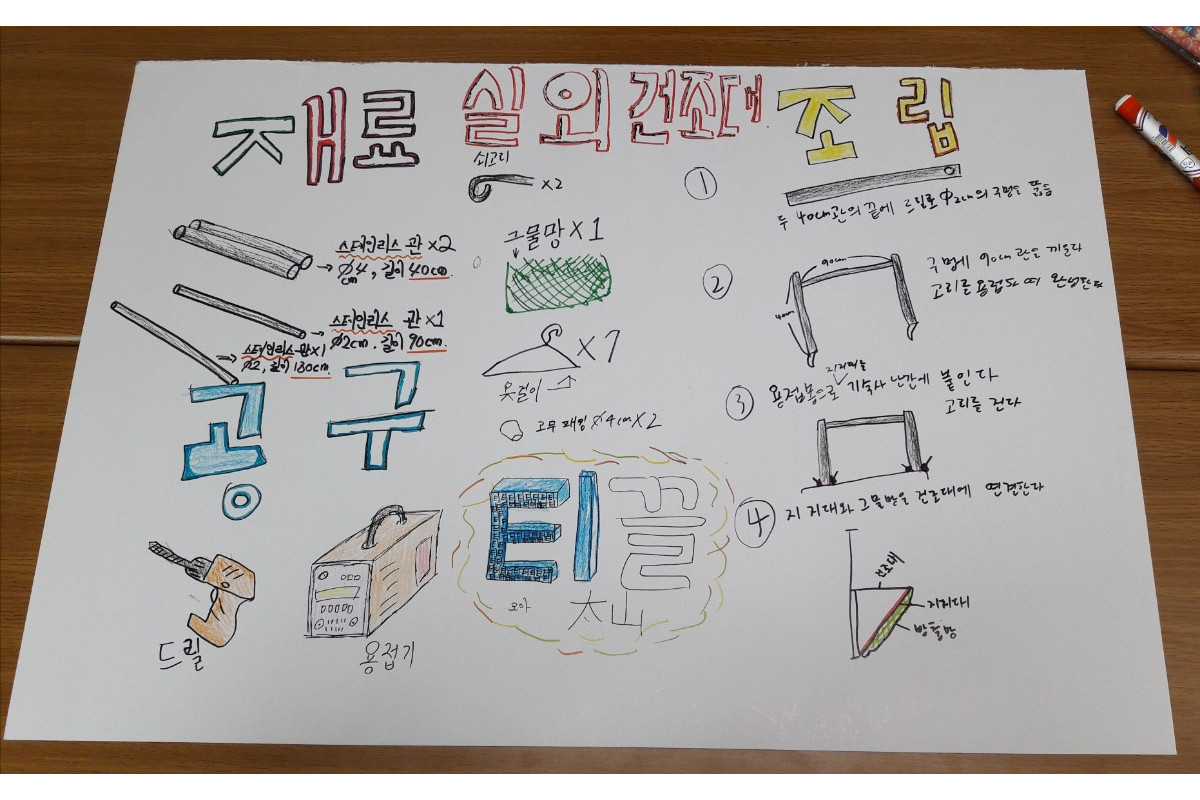 재료
스테인리스 관 x2
Ø4cm, 길이 40cm.
스테인리스 관 x1
Ø2cm, 길이 90cm.
x1
Ø2, 길이 130cm
공구
드릴
용접기
실외 건조대
쇠고리
x2
그물망 x1
x7
옷걸이
고무패킹 Ø4cm x2
티끌
모아
太山
조립
①
두 40cm관의 끝에 드릴로 Φ2cm의 구멍을 뚫음
②
90cm
40cm
구멍에 90cm 관을 끼운다
고리를 용접하여 완성한다
③
지지대를
용접봉으로 기숙사 난간에 붙인다
고리를 건다
④
지지대와 그물망을 건조대에 연결한다
건조대
지지대